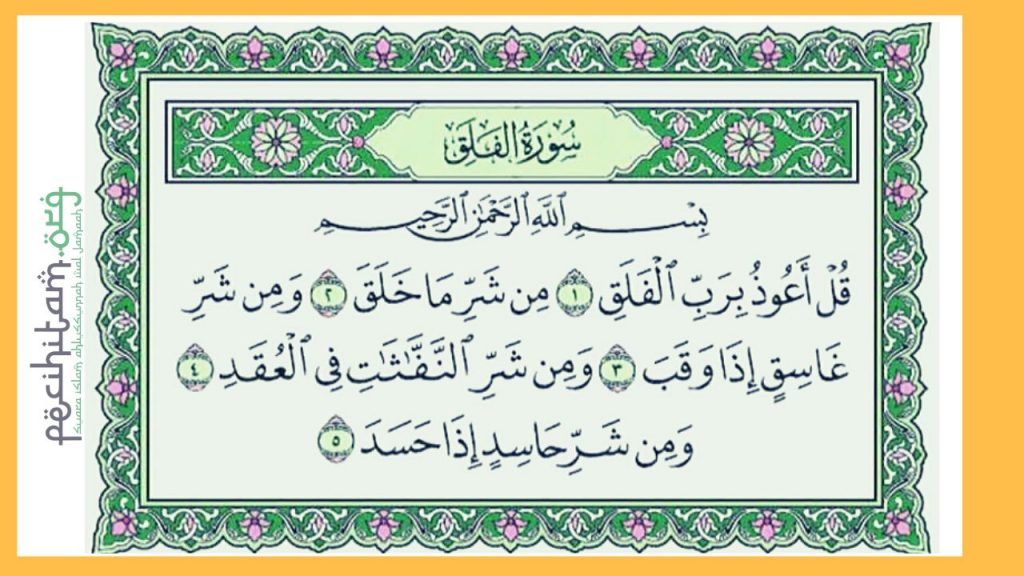 سُورَةُ الفَلَقِ
بِسْمِ اللَّهِ الرَّحْمَٰنِ الرَّحِيمِ
قُلْ أَعُوذُ بِرَبِّ الْفَلَقِ ١ مِن شَرِّ مَا خَلَقَ ٢ وَمِن شَرِّ
غَاسِقٍ إِذَا وَقَبَ ٣ وَمِن شَرِّ النَّفَّٰثَٰتِ فِي الْعُقَدِ ٤
وَمِن شَرِّ حَاسِدٍ إِذَا حَسَدَ ٥
pecihitam.org
Suara islam ahlussunnah wal Jamaah